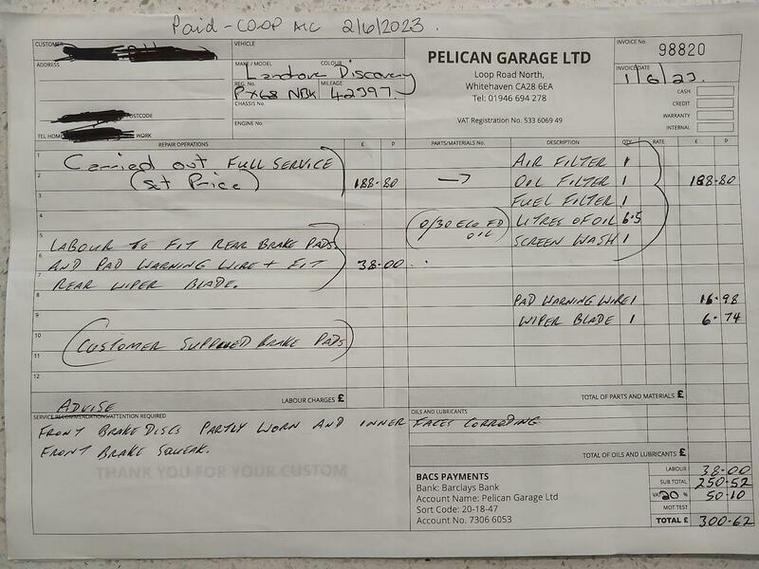 Paid - CO-OP A/C 2/6/2023.
CUSTOMER
ADDRESS
POSTCODE
TEL HOME WORK
VEHICLE
MAKE / MODEL COLOUR
Landrover Discovery
REG. No. MILEAGE
PX68 NBK 42397.
CHASSIS No.
ENGINE No.
PELICAN GARAGE LTD
Loop Road North,
Whitehaven CA28 6EA
Tel: 01946 694 278
VAT Registration No. 533 6069 49
INVOICE No. 98820
INVOICE DATE
1/6/23.
CASH
CREDIT
WARRANTY
INTERNAL
REPAIR OPERATIONS £ P
1 Carried out FULL SERVICE
2 (Set Price) 188-80
3
4
5 LABOUR TO FIT REAR BRAKE PADS
6 AND PAD WARNING WIRE + FIT 38-00
7 REAR WIPER BLADE.
8
9
10 (CUSTOMER SUPPLIED BRAKE PADS)
11
12
LABOUR CHARGES £
PARTS/MATERIALS No. DESCRIPTION QTY RATE £ P
AIR FILTER 1
OIL FILTER 1 188-80
FUEL FILTER 1
0/30 ECO FD OIL LITRES OF OIL 6.5
SCREEN WASH 1
PAD WARNING WIRE 1 16-98
WIPER BLADE 1 6-74
TOTAL OF PARTS AND MATERIALS £
ADVISE
SERVICE RECOMMENDATIONS/ATTENTION REQUIRED
FRONT BRAKE DISCS PARTLY WORN AND INNER FACES CORRODING.
FRONT BRAKE SQUEAK.
THANK YOU FOR YOUR CUSTOM
OILS AND LUBRICANTS
TOTAL OF OILS AND LUBRICANTS £
BACS PAYMENTS
Bank: Barclays Bank
Account Name: Pelican Garage Ltd
Sort Code: 20-18-47
Account No. 7306 6053
LABOUR 38-00
SUB TOTAL 250-52
VAT 20 % 50-10
MOT TEST
TOTAL £ 300-62